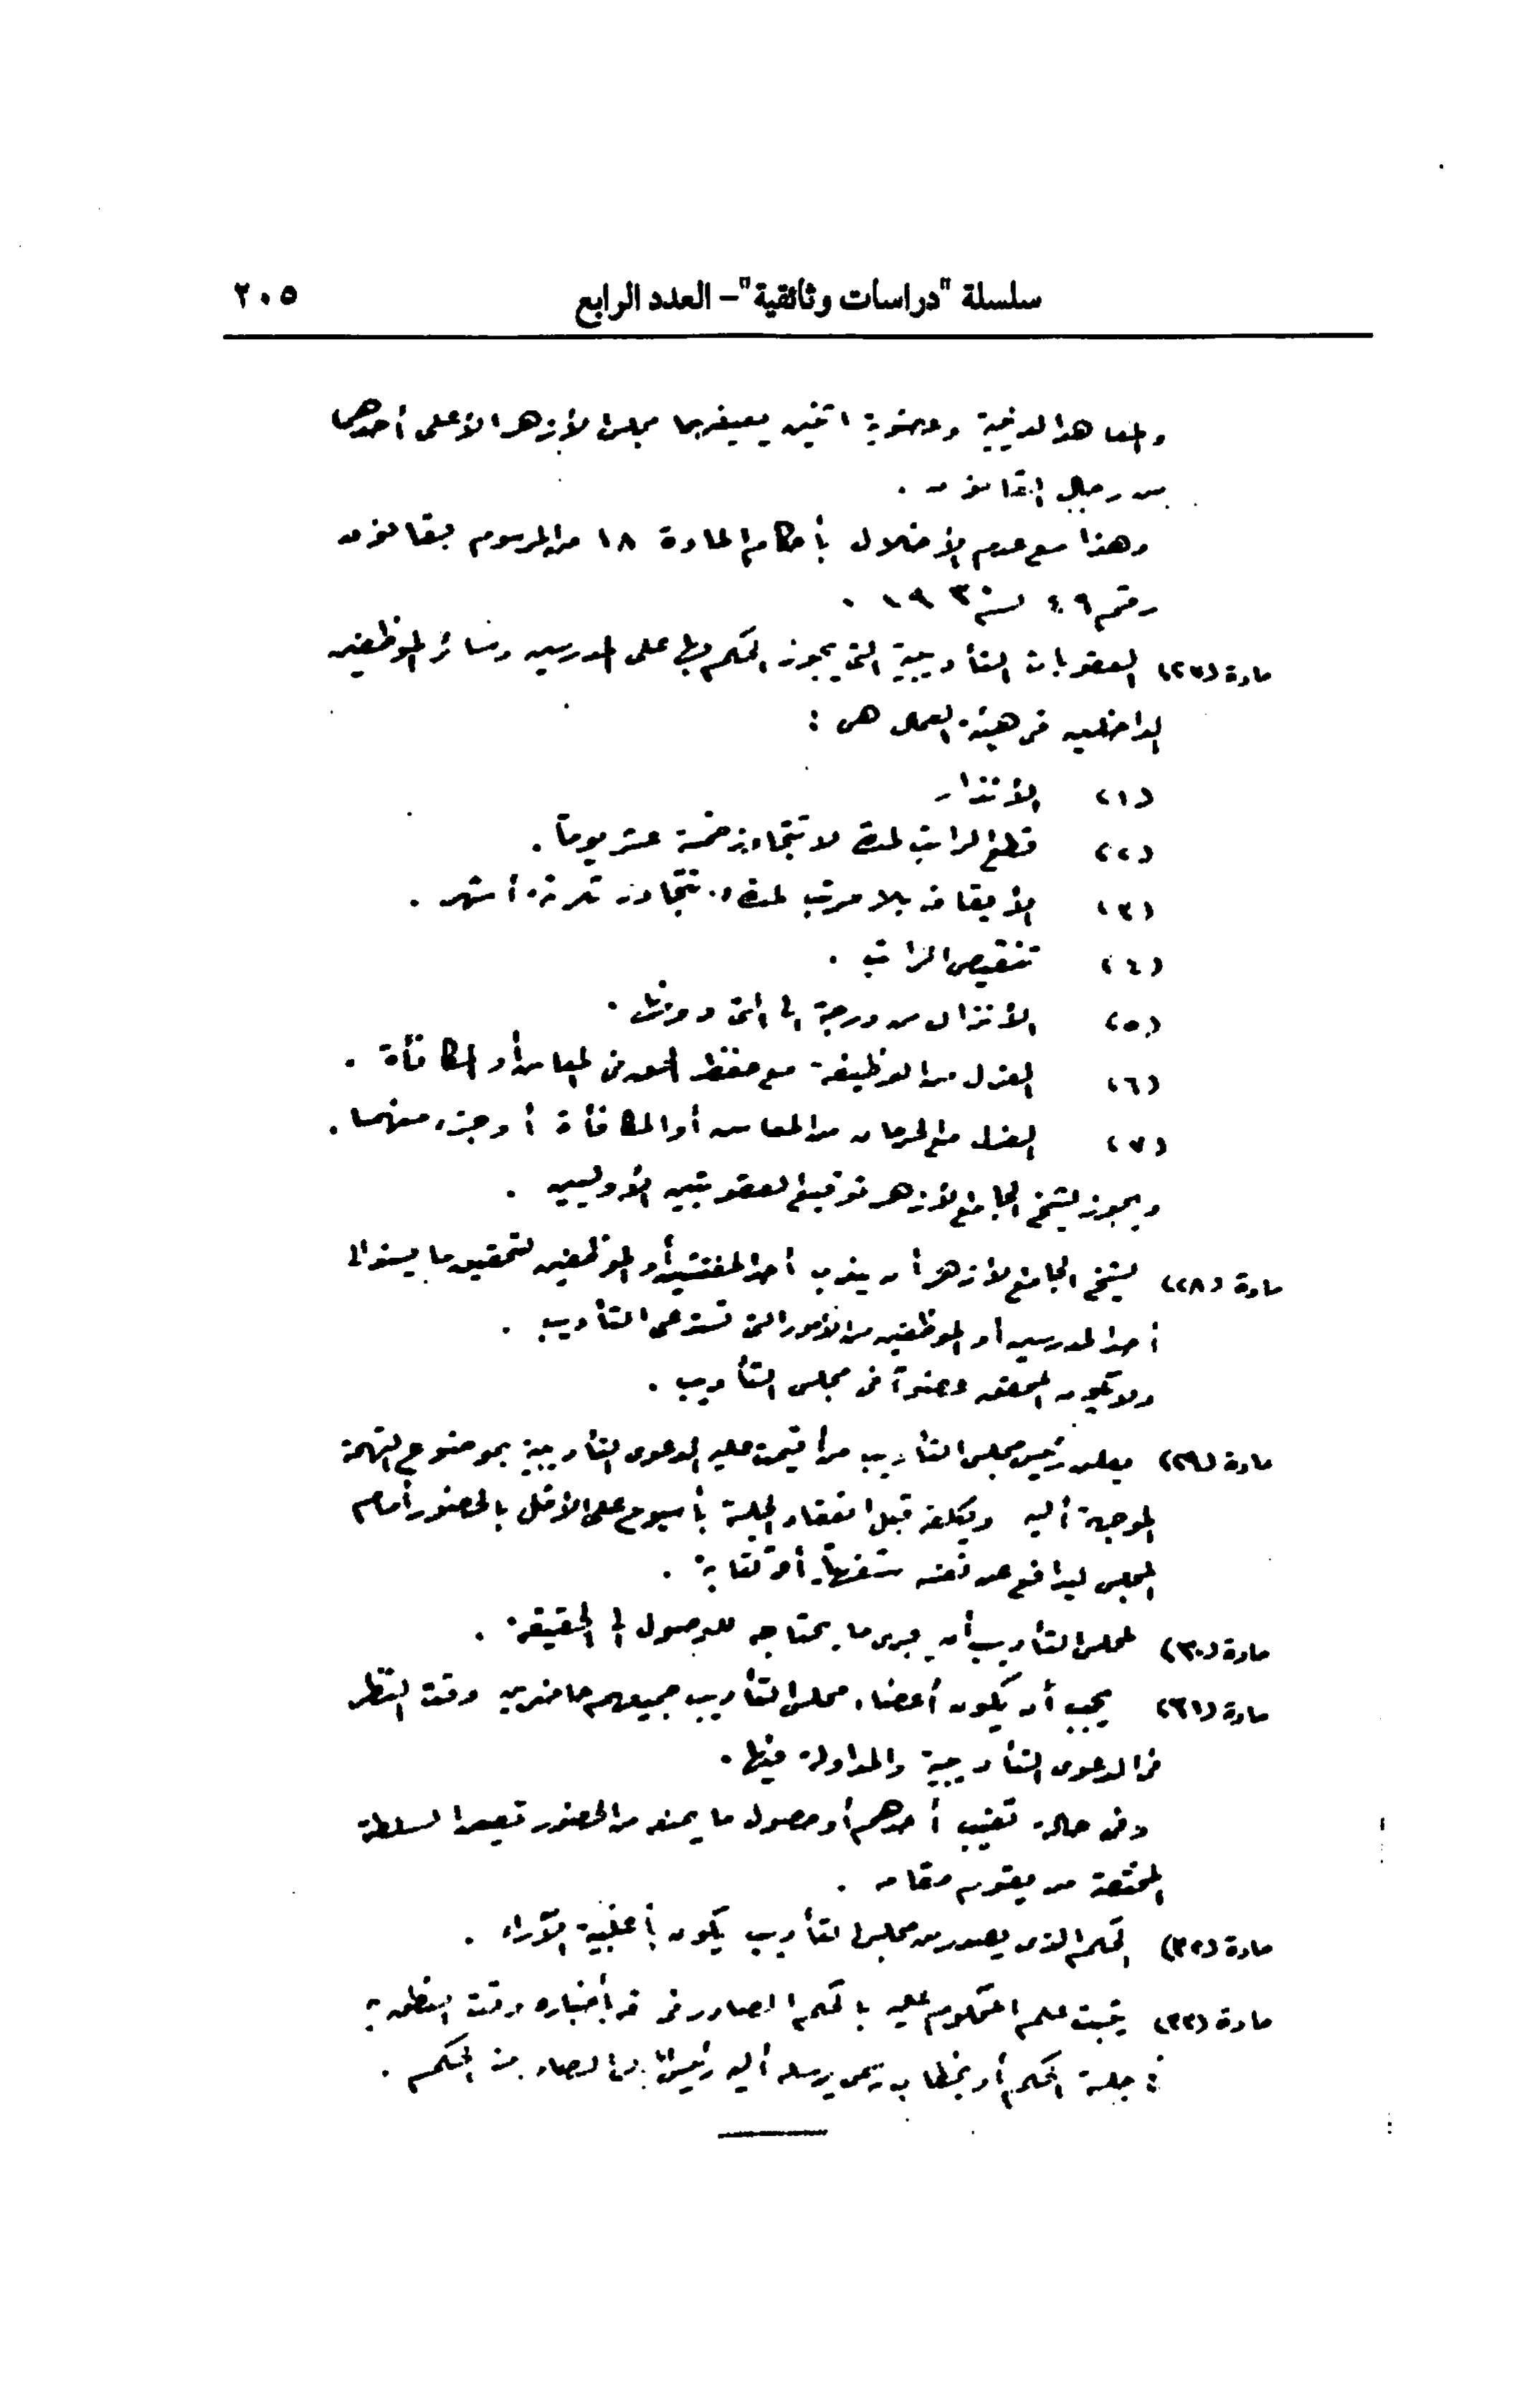 سلسلة "دراسات وثائقية"– العدد الرابع ٢٠٥
والمعاهد الدينية وعضوية اثنين يعينهما مجلس الأزهر الأعلى أحدهما
من رجال القانون .
وهذا مع عدم الأخلال بأحكام المادة ١٨ من المرسوم بقانون
رقم ٤٩ لسنة ١٩٣٠ .
مادة (٢٧) العقوبات التأديبية التى يجوز الحكم بها على المدرسين وسائر الموظفين
الداخلين فى هيئة العمال هى :
(١) الأنذار
(٢) قطع الراتب لمدة لا تتجاوز خمسة عشر يوماً .
(٣) الأيقاف بلا مرتب لمدة لا تتجاوز ثلاثة أشهر .
(٤) تنقيص الراتب .
(٥) الأنزال من درجة الى التى دونها .
(٦) العزل من الوظيفة مع حفظ الحق فى المعاش أو المكافأة .
(٧) العزل مع الحرمان من المعاش أو المكافأة أو جزء منهما .
ويجوز لشيخ الجامع الأزهر توقيع العقوبتين الأوليين .
مادة (٢٨) لشيخ الجامع الأزهر أن يندب أحد المفتشين أو الموظفين لتحقيق ما يسند الى
أحد المدرسين أو الموظفين من الأمور التى تستدعى التأديب .
ولا يكون المحقق عضواً فى مجلس التأديب .
مادة (٢٩) يعلن رئيس مجلس التأديب من أقيمت عليه الدعوى التأديبية بموضوع التهمة
الموجهة أليه ويكلفه قبل انعقاد الجلسة بأسبوع على الأقل بالحضور أمام
المجلس ليدافع عن نفسه شفهياً أو كتابة .
مادة (٣٠) لمجلس التأديب أن يجرى ما يحتاجه للوصول الى الحقيقة .
مادة (٣١) يجب أن يكون أعضاء مجلس التأديب جميعهم حاضرين وقت النظر
فى الدعوى التأديبية والمداولة فيها .
وفى حالة تغيب أحدهم أو حصول ما يمنعه من الحضور تعين السلطة
المختصة من يقوم مقامه .
مادة (٣٢) الحكم الذى يصدر من مجلس التأديب يكون بأغلبية الآراء .
مادة (٣٣) يثبت علم المحكوم عليه بالحكم الصادر فى بأخباره وقت النطق به
جلسة الحكم أو بخطاب رسمى يرسله أليه رئيس الصادر منه الحكم .